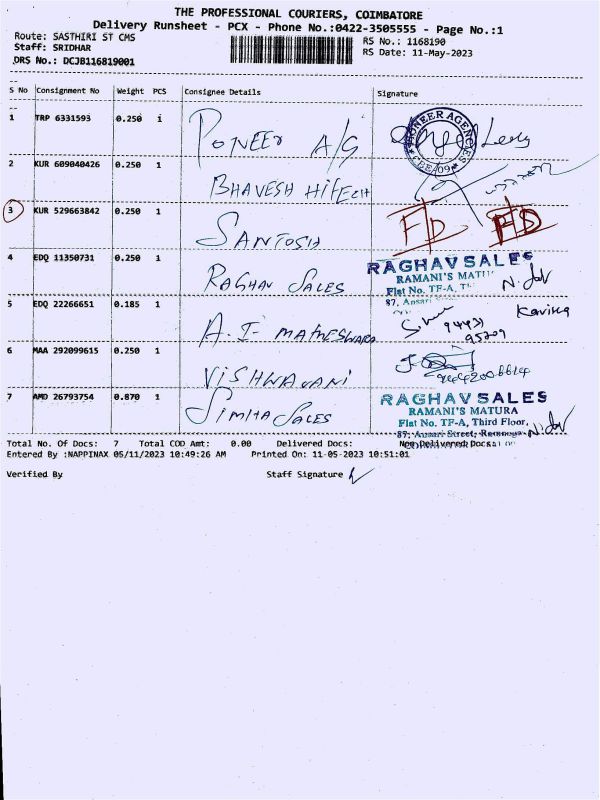 THE PROFESSIONAL COURIERS, COIMBATORE
Delivery Runsheet - PCX - Phone No.:0422-3505555 - Page No.:1
Route: SASTHIRI ST CMS
Staff: SRIDHAR
DRS No.: DCJB116819001
RS No.: 1168190
RS Date: 11-May-2023
S No Consignment No Weight PCS Consignee Details Signature
1 TRP 6331593 0.250 1 PONEER A/G PIONEER AGENCIES CBE/09
2 KUR 609040426 0.250 1 BHAVESH HITECH
3 KUR 529663842 0.250 1 SANTOSH F/D F/D
4 EDQ 11350731 0.250 1 RAGHAV SALES RAGHAV SALES
RAMANI'S MATU
Flat No. TF-A, T
87, Ansari
5 EDQ 22266651 0.185 1 A.I- MAHESWARA Kavika
6 MAA 292099615 0.250 1 VISHWAVANI
7 AMD 26793754 0.870 1 SIMITA SALES RAGHAV SALES
RAMANI'S MATURA
Flat No. TF-A, Third Floor,
87, Ansari Street,
Total No. Of Docs: 7 Total COD Amt: 0.00 Delivered Docs: Non Delivered Docs:
Entered By :NAPPINAX 05/11/2023 10:49:26 AM Printed On: 11-05-2023 10:51:01
Verified By Staff Signature